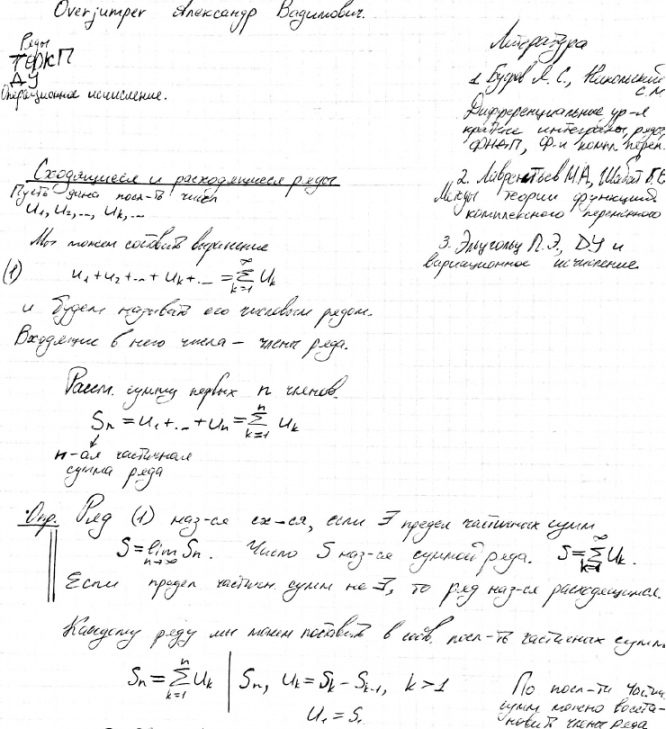 Overjumper Александр Вадимович.
Ряды
ТФКП
ДУ
Операционное исчисление.
Литература
1. Бугров Я. С., Никольский С.М.
Дифференциальные ур-я
кратные интегралы, ряды,
ФНАП, Ф-и компл. перен.
2. Лаврентьев М.А, Шабат Б.В
Методы теории функций
комплексного переменного
3. Эльсгольц Л.Э., ДУ и
вариационное исчисление.
Сходящиеся и расходящиеся ряды
Пусть дана посл-ть чисел
u₁, u₂, ..., uₖ, ...
Мы можем составить выражение
(1) u₁ + u₂ + ... + uₖ + ... = ∑_{k=1}^{∞} uₖ
и будем называть его числовым рядом.
Входящие в него числа – члены ряда.
Рассм. сумму первых n членов.
Sₙ = u₁ + ... + uₙ = ∑_{k=1}^{n} uₖ
n-ая частичная
сумма ряда
Опр. Ряд (1) наз-ся сх-ся, если ∃ предел частичных сумм
S = lim_{n→∞} Sₙ. Число S наз-ся суммой ряда. S = ∑_{k=1}^{∞} uₖ.
Если предел частичн. сумм не ∃, то ряд наз-ся расходящимся.
Каждому ряду мы можем поставить в соотв. посл-ть частичных сумм
Sₙ = ∑_{k=1}^{n} uₖ | Sₙ, uₖ = Sₖ - Sₖ₋₁, k > 1
u₁ = S₁
По посл-ти части
сумм можно восста-
новить члены ряда